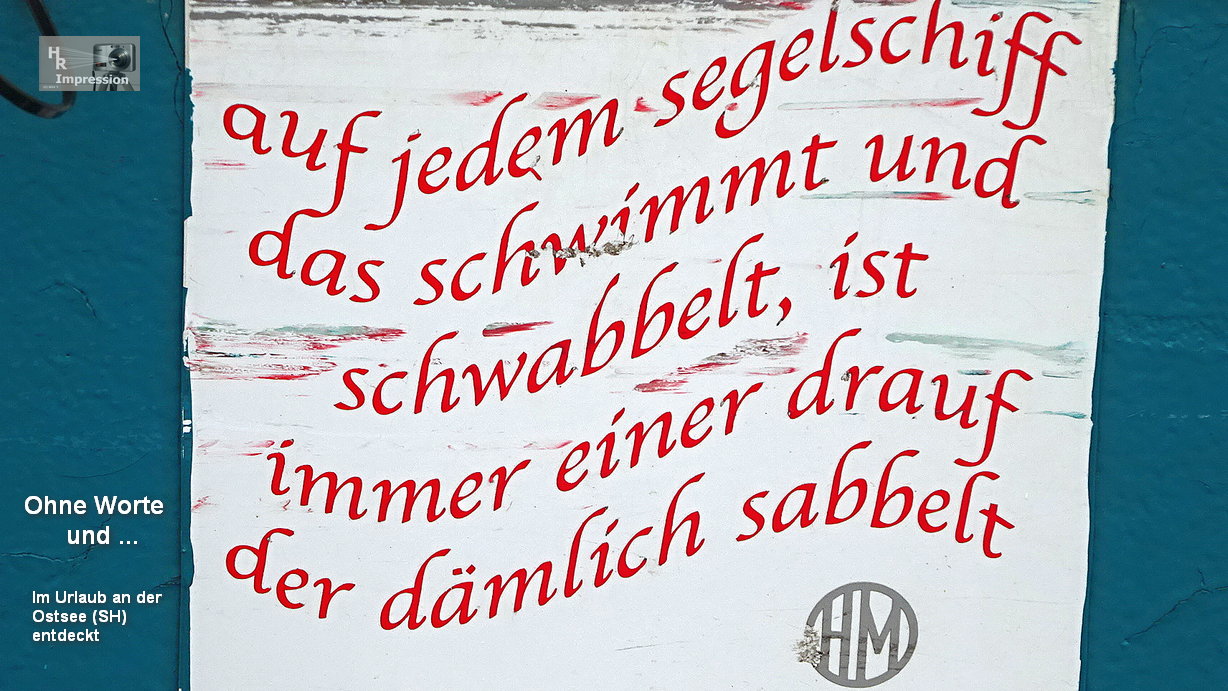 HR
Impression
auf jedem segelschiff
das schwimmt und
schwabbelt, ist
immer einer drauf
der dämlich sabbelt
HM
Ohne Worte
und ...
Im Urlaub an der
Ostsee (SH)
entdeckt